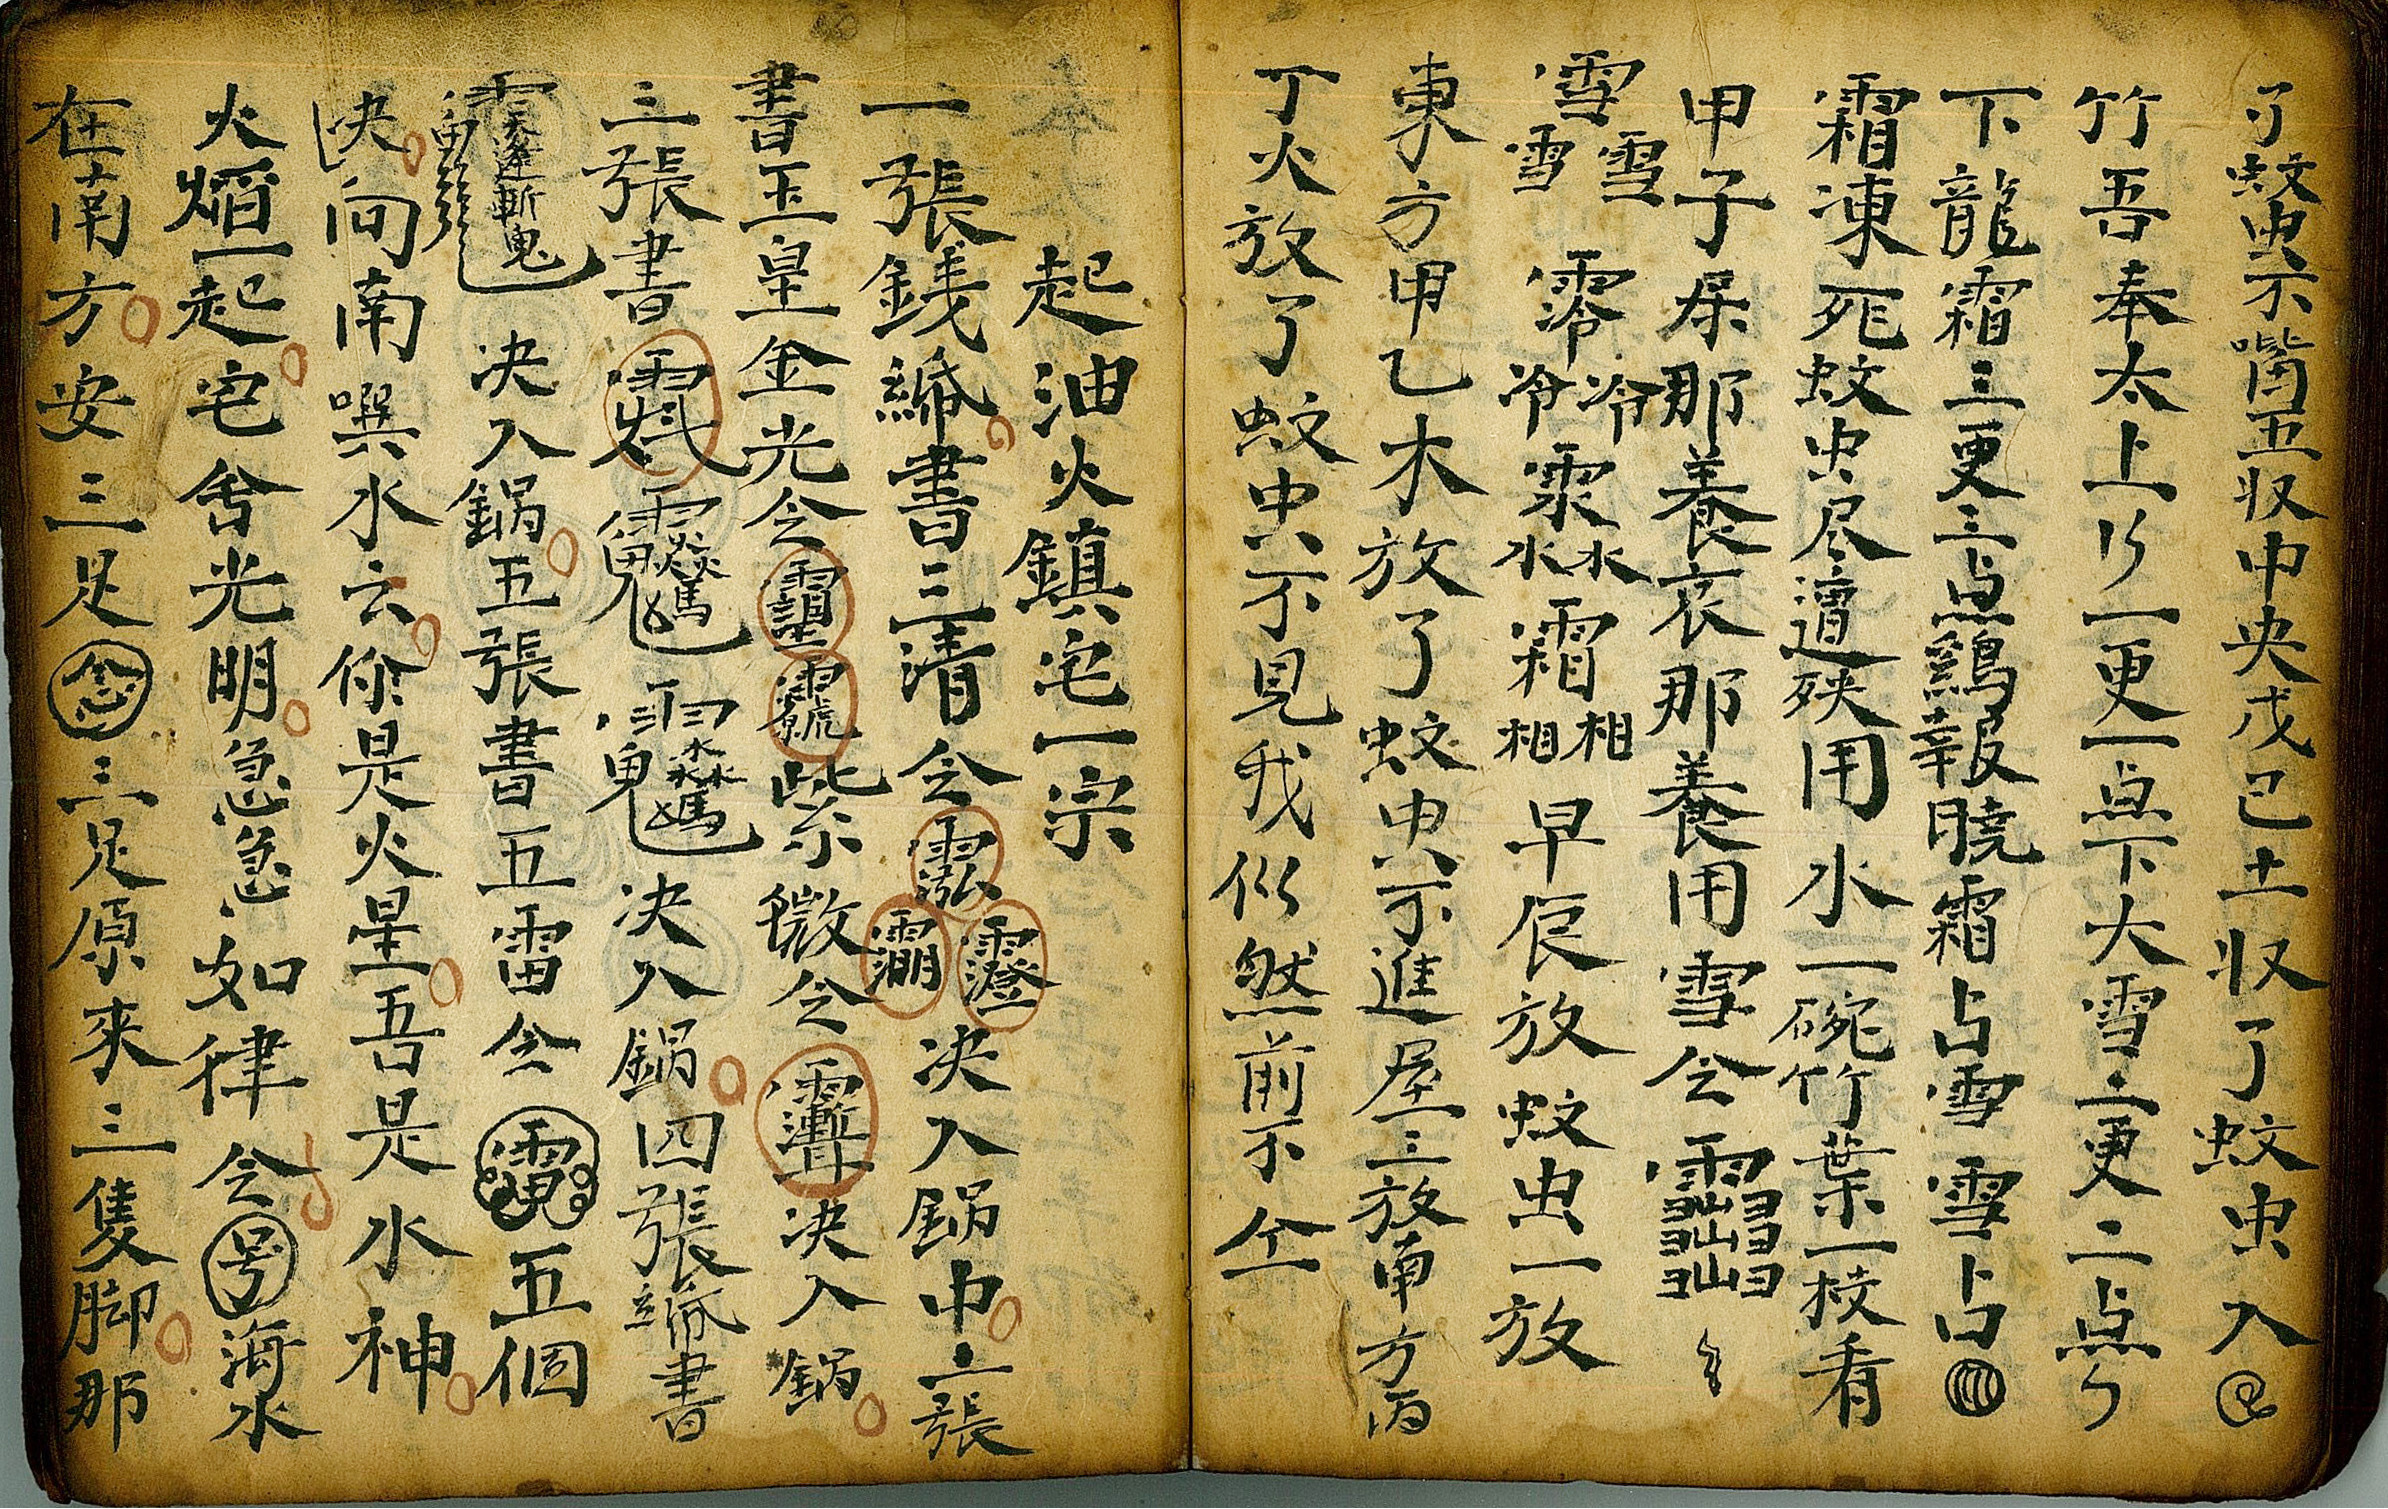 了蚊虫不啮五収中央戊己土収了蚊虫入
竹吾奉太上一更一点下大雪二更二点
下龍霜三更三点鷄報曉霜占雪雪占
霜凍死蚊虫尽遭殃用水一碗竹葉一枝看
甲子屎那養衣那養用雪令
雪雪雪 零冷冷 水水 霜相相 早辰放蚊虫一放
東方甲乙木放了蚊虫不進屋三放南方丙
丁火放了蚊虫不見我似然前不仝
起油火鎮宅一宗
一張銭紙書三清令 决入鍋中二張
書玉皇金光令 紫微令 决入鍋
三張書 决入鍋四張紙書
天蓬斬鬼 决入鍋五張書五雷令 五個
决向南噀水云你是火星吾是水神
火焰一起宅舍光明急急如律令号海水
在南方安三足念三足原來三隻脚那